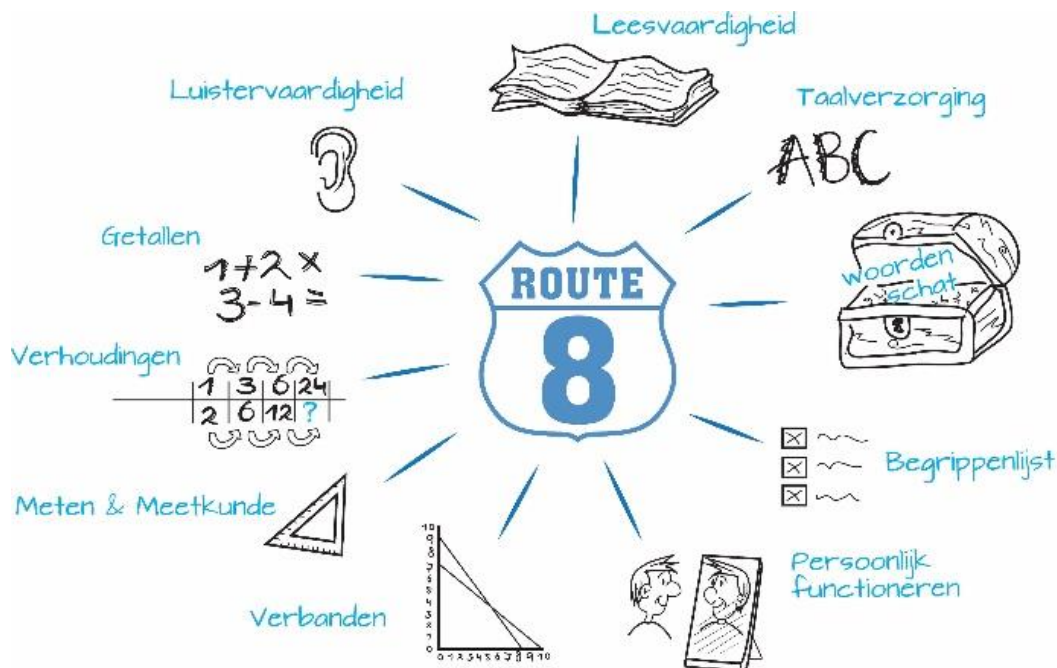 Leesvaardigheid
Luistervaardigheid
Taalverzorging
ABC
Getallen
1+2x
3-4=
woorden
schat
ROUTE
8
Verhoudingen
1 3 6 24
2 6 12 ?
Begrippenlijst
Meten & Meetkunde
Persoonlijk
functioneren
Verbanden
10
9
8
7
6
5
4
3
2
1
0
0 1 2 3 4 5 6 7 8 9 10